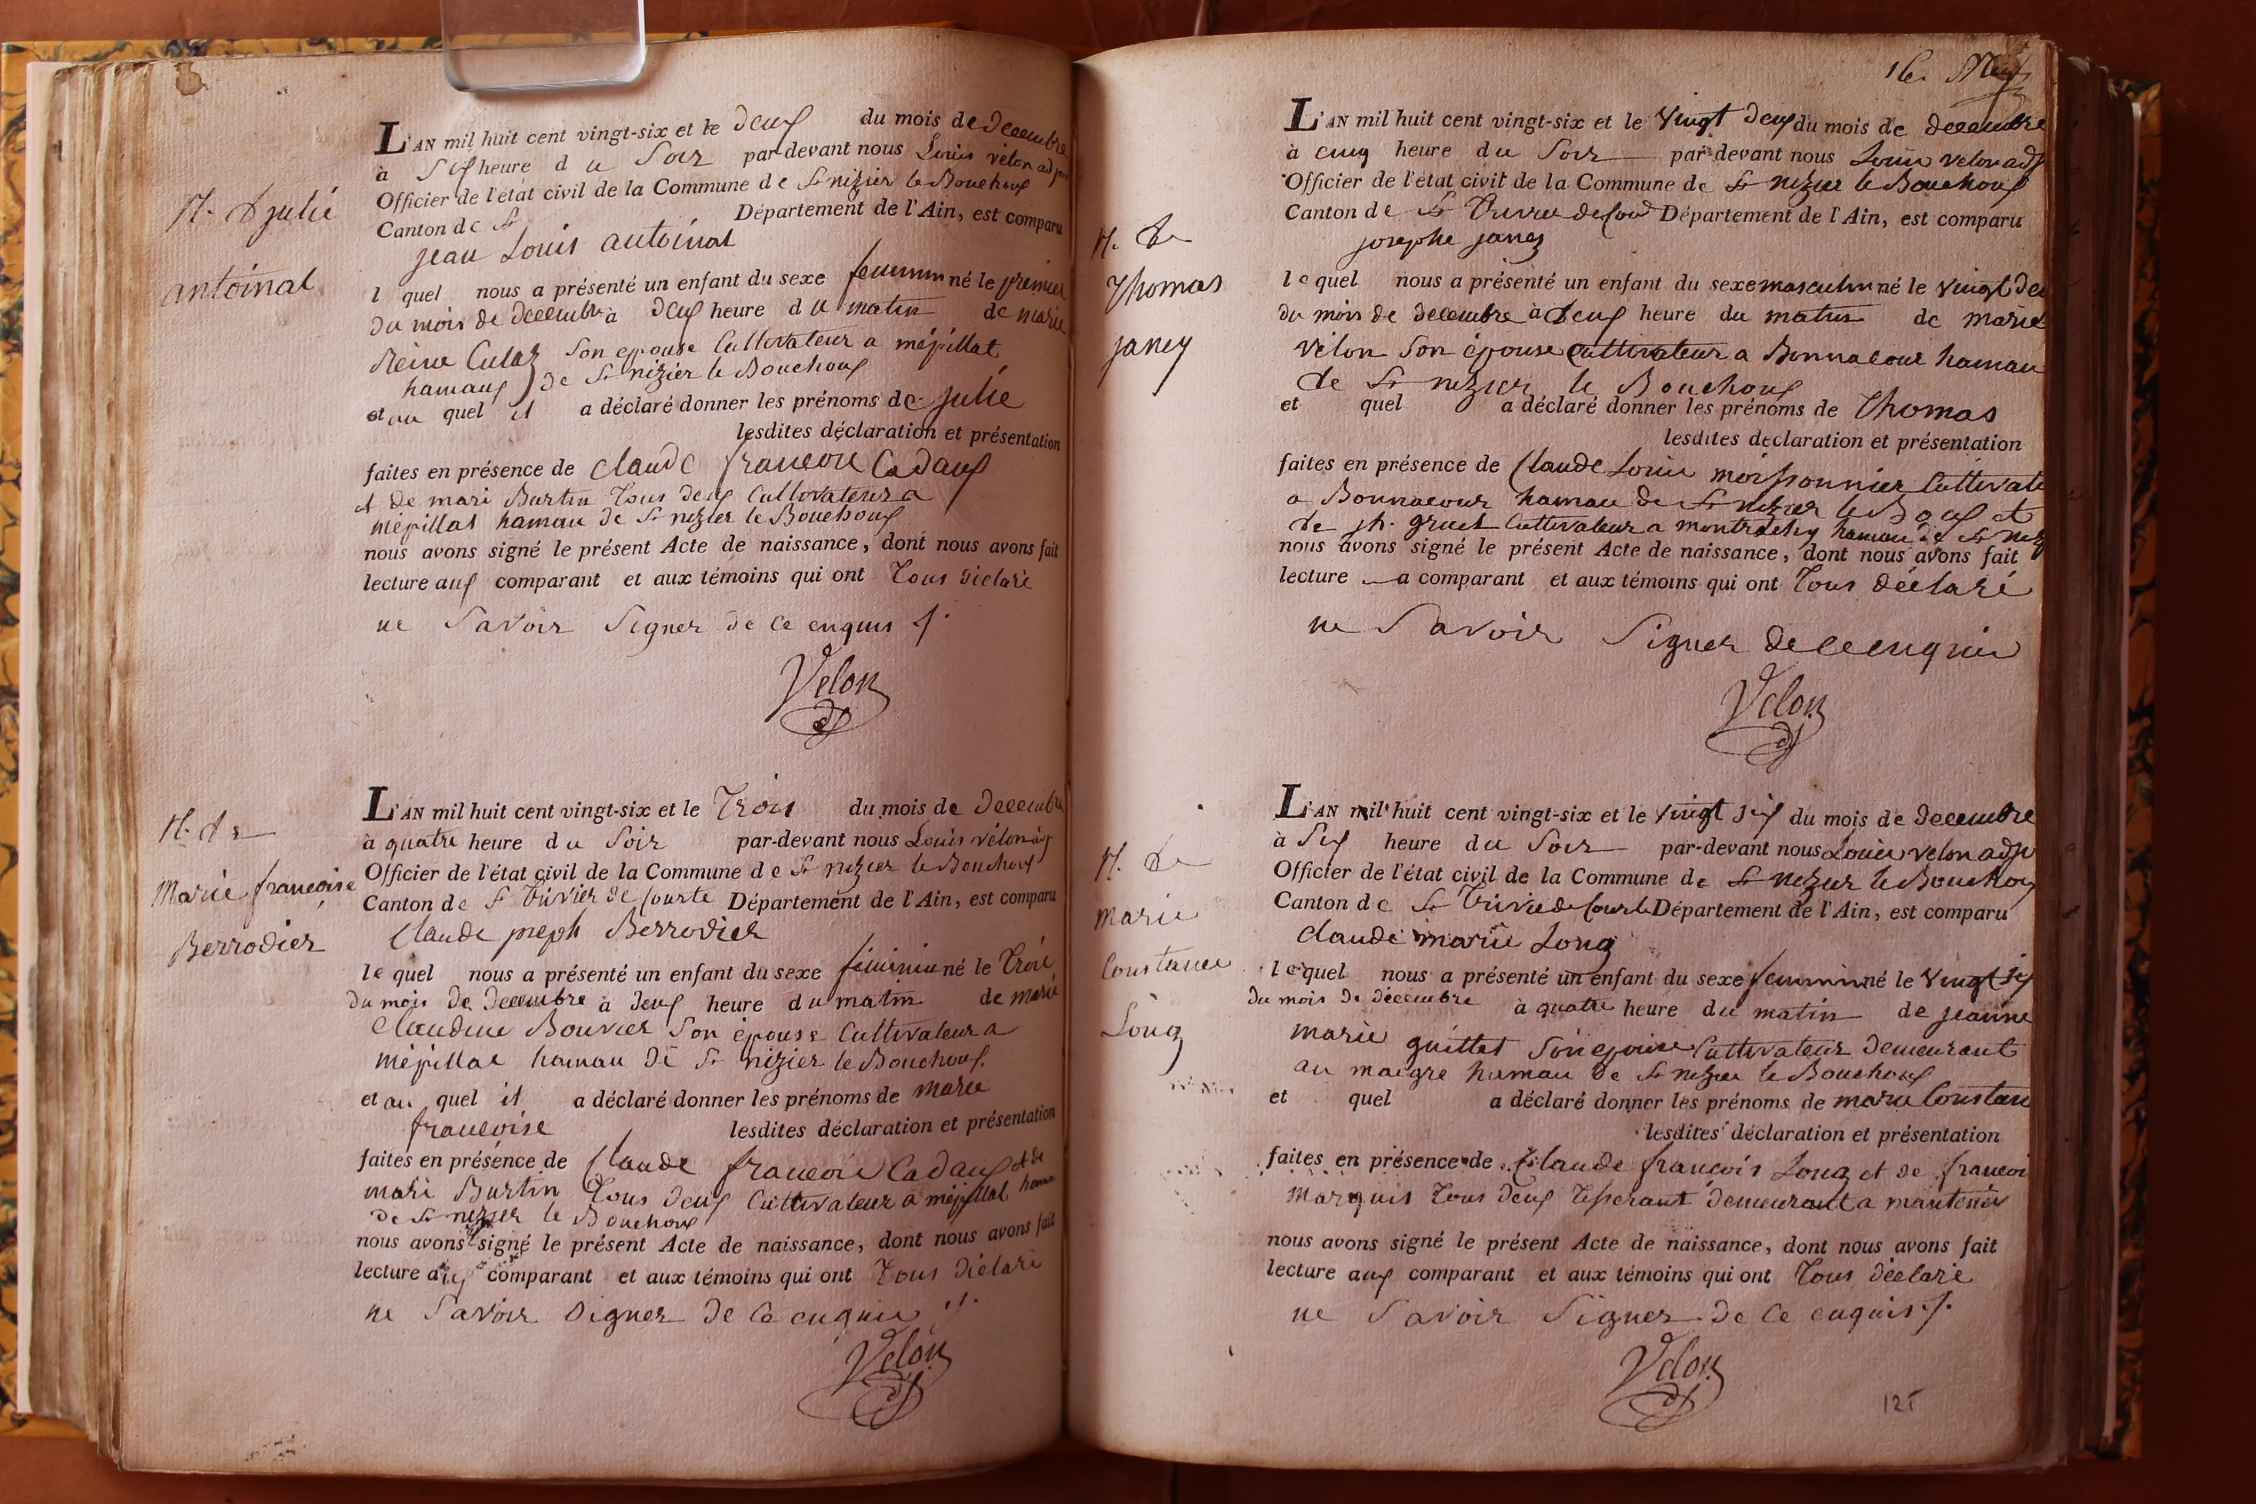 N. de julié
antoinat
L'AN mil huit cent vingt-six et le deux du mois de decembre
à Six heure du Soir par-devant nous Louis velon adj
Officier de l'état civil de la Commune de St nizier le Bouchoux
Canton de St Département de l'Ain, est comparu
jean Louis antoinat
l quel nous a présenté un enfant du sexe feminin né le premier
du mois de decembre à deux heure du matin de marie
Reine Cutaz Son epouse Cultivateur a mépillat
hamaux de St nizier le Bouchoux
et au quel il a déclaré donner les prénoms de julie
lesdites déclaration et présentation
faites en présence de Claude francois Cadaux
et de mari Burtin Tous deux Cultivateur a
mépillat hamau de St nizier le Bouchoux
nous avons signé le présent Acte de naissance, dont nous avons fait
lecture aux comparant et aux témoins qui ont Tous declaré
ne Savoir Signer de ce enquis
Velon
N. de
Marie francoise
Berrodier
L'AN mil huit cent vingt-six et le Trois du mois de decembre
à quatre heure du Soir par-devant nous Louis vélon adj
Officier de l'état civil de la Commune de St nizier le Bouchoux
Canton de St Trivier de Courte Département de l'Ain, est comparu
Claude joseph Berrodier
le quel nous a présenté un enfant du sexe feminin né le trois
du mois de decembre à deux heure du matin de marie
Claudine Bouvier Son épouse Cultivateur a
mépillat hamau de St nizier le Bouchoux
et au quel il a déclaré donner les prénoms de marie
francoise lesdites déclaration et présentation
faites en présence de Claude francois Cadaux et de
mari Burtin Tous deux Cultivateur a mépillat hamau
de St nizier le Bouchoux
nous avons signé le présent Acte de naissance, dont nous avons fait
lecture aux comparant et aux témoins qui ont Tous déclaré
ne Savoir Signer de ce enquis
Velon
16.
N. de
Thomas
janey
L'AN mil huit cent vingt-six et le vingt deux du mois de decembre
à cinq heure du Soir par-devant nous Louis velon adj
Officier de l'état civil de la Commune de St nizier le Bouchoux
Canton de St Trivier de Cour Département de l'Ain, est comparu
josephe janey
le quel nous a présenté un enfant du sexe masculin né le vingt deu
du mois de decembre à deux heure du matin de marie
vélon Son épouse Cultivateur a Bonnacour hamau
de St nizier le Bouchoux
et quel a déclaré donner les prénoms de Thomas
lesdites déclaration et présentation
faites en présence de Claude Louis moissonnier Cultivate
a Bonnacour hamau de St nizier le Boux et
de jh. gruet Cultivateur a hamau de St niz
nous avons signé le présent Acte de naissance, dont nous avons fait
lecture a comparant et aux témoins qui ont Tous déclaré
ne Savoir Signer de ce enquis
Velon
N. de
marie
Constance
Long
L'AN mil huit cent vingt-six et le vingt six du mois de decembre
à Six heure du Soir par-devant nous Louis velon adj
Officier de l'état civil de la Commune de St nizier le Bouchoux
Canton de St Trivier de Courte Département de l'Ain, est comparu
Claude marie Long
le quel nous a présenté un enfant du sexe feminin né le vingt six
du mois de décembre à quatre heure du matin de jeanne
marie guillet Son epouse Cultivateur demeurant
au maigre hamau de St nizier le Bouchoux
et quel a déclaré donner les prénoms de marie Constan
lesdites déclaration et présentation
faites en présence de Claude francois Long et de francoi
Marquis Tous deux Tisserant demeurant a
nous avons signé le présent Acte de naissance, dont nous avons fait
lecture aux comparant et aux témoins qui ont Tous déclaré
ne Savoir Signer de ce enquis
Velon
125